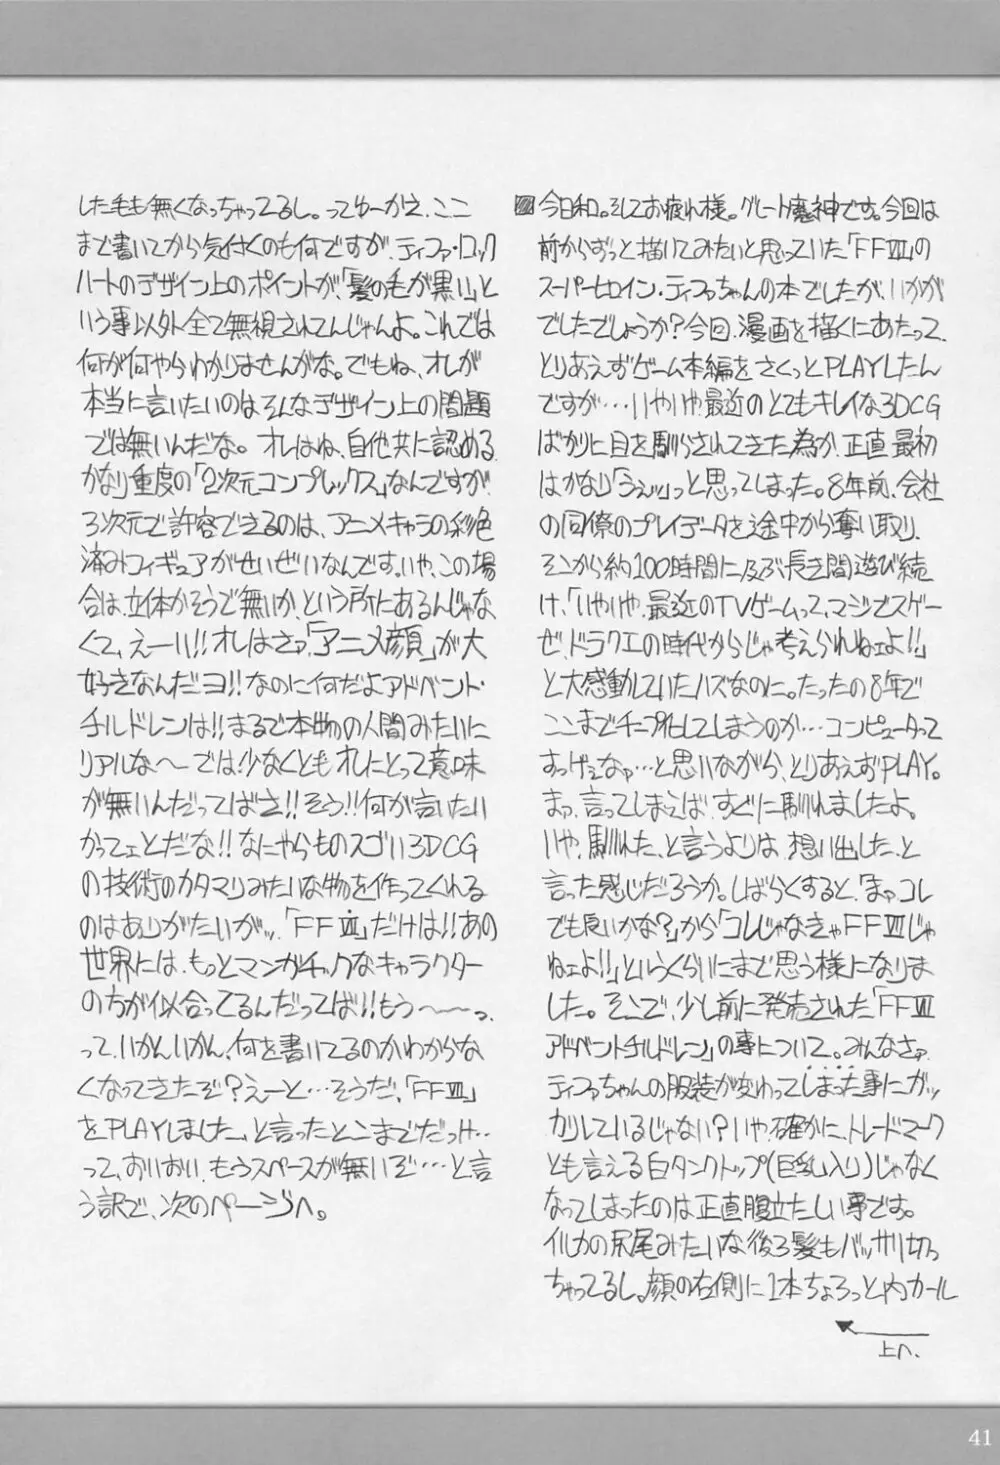 今日和。そしてお疲れ様。グレート魔神です。今回は
前からずっと描いてみたいと思っていた「FFⅦ」の
スーパーヒロイン・ティファちゃんの本でしたが、いかが
でしたでしょうか?今回、漫画を描くにあたって、
とりあえずゲーム本編をさくっとPLAYしたん
ですが…いやいや、最近のとてもキレイな3DCG
ばかりに目を馴らされてきた為か、正直最初
はかなり「うえッ」っと思ってしまった。8年前、会社
の同僚のプレイデータを途中から奪い取り、
そこから約100時間に及ぶ長き間遊び続
け、「いやいや、最近のTVゲームって、マジでスゲー
ぜ、ドラクエの時代からじゃ考えられねェよ!!」
と大感動していたハズなのに。たったの8年で
ここまでチープ化してしまうのか…コンピュータって
すっげェなァ…と思いながら、とりあえずPLAY。
まァ、言ってしまえば、すぐに馴れましたよ。
いや、馴れた、と言うよりは、想い出した、と
言った感じだろうか。しばらくすると、「まァコレ
でも良いかな?」から「コレじゃなきゃFFⅦじゃ
ねェよ!!」というくらいにまで思う様になりま
した。そこで、少し前に発売された「FFⅦ
アドベントチルドレン」の事について。みんなさァ、
ティファちゃんの服装が変わってしまった事にガッ
カリしているじゃない?いや、確かに、トレードマーク
とも言える白タンクトップ(巨乳入り)じゃなく
なってしまったのは正直腹立たしい事です。
イルカの尻尾みたいな後ろ髪もバッサリ切っ
ちゃってるし。顔の右側に1本ちょろっと内カール
上へ.
した毛も無くなっちゃってるし。ってゆーかえ、ここ
まで書いてから気付くのも何ですが、ティファ・ロック
ハートのデザイン上のポイントが、「髪の毛が黒い」と
いう事以外全て無視されてんじゃんよ。これでは
何が何やらわかりませんがな。でもね、オレが
本当に言いたいのはそんなデザイン上の問題
では無いんだな。オレはね、自他共に認める、
かなり重度の「2次元コンプレックス」なんですが、
3次元で許容できるのは、アニメキャラの彩色
済みフィギュアがせいぜいなんです。いや、この場
合は、立体かそうで無いか、という所にあるんじゃな
くて、えーい!!オレはさァ、「アニメ顔」が大
好きなんだヨ!!なのに何だよアドベント・
チルドレンは!!まるで本物の人間みたいに
リアルな〜では、少なくともオレにとって意味
が無いんだってばさ!!そう!!何が言いたい
かってェとだな!!なにやらものスゴい3DCG
の技術のカタマリみたいな物を作ってくれる
のはありがたいがッ、「FFⅦ」だけは!!あの
世界には、もっとマンガチックなキャラクター
の方が似合ってるんだってば!!もう〜〜っ、
って、いかんいかん、何を書いてるのかわからな
くなってきたぞ?えーと…そうだ、「FFⅦ」
をPLAYしました、と言ったとこまでだっけ…
って、おいおい、もうスペースが無いぞ…と言
う訳で、次のページへ。
41